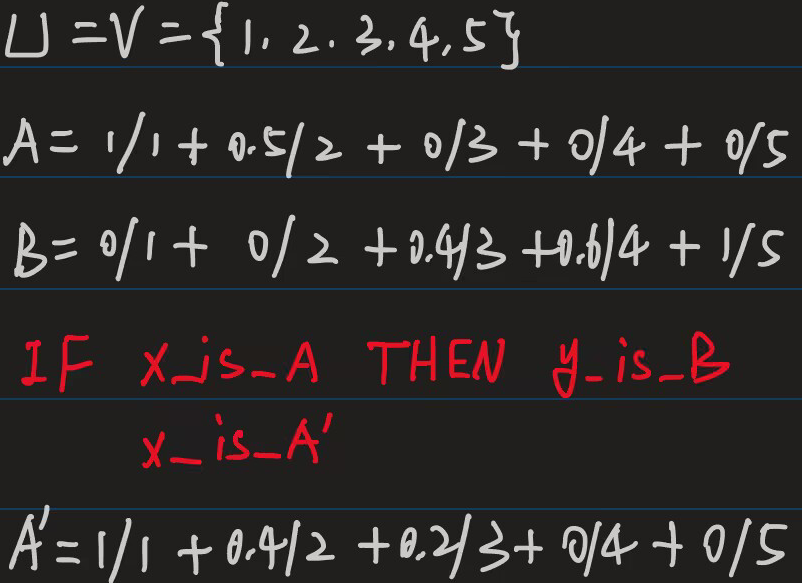 U=V={1.2.3.4,5}
A=1/1+0.5/2+0/3+0/4+0/5
B=0/1+0/2+0.4/3+0.6/4+1/5
IF x_is_A THEN y_is_B
x_is_A'
A'=1/1+0.4/2+0.2/3+0/4+0/5